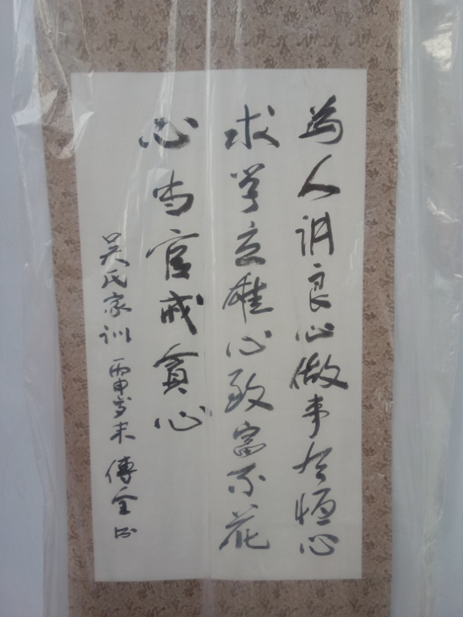 为人讲良心做事有恒心
求学立雄心致富不花
心当官戒贪心
吴氏家训 丙申岁末 傅全书